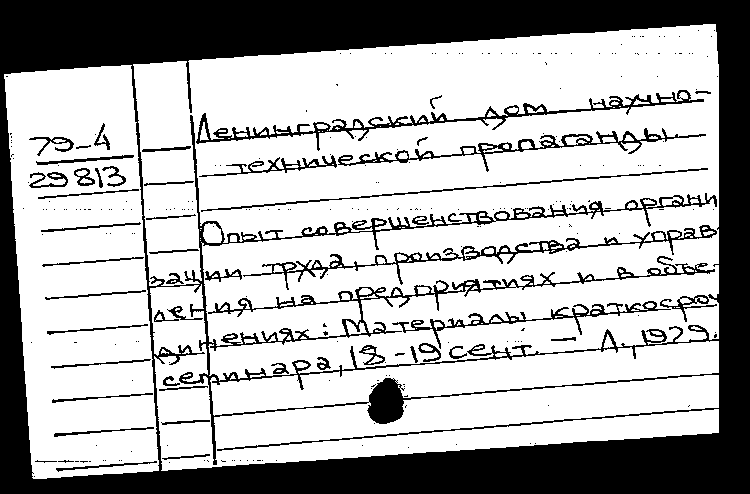 79-4
29813
Ленинградский дом научно-
технической пропаганды.
Опыт совершенствования органи
зации труда, производства и управ
ления на предприятиях и в объе-
динениях: Материалы краткосроч
семинара, 18-19 сент. - Л., 1979.